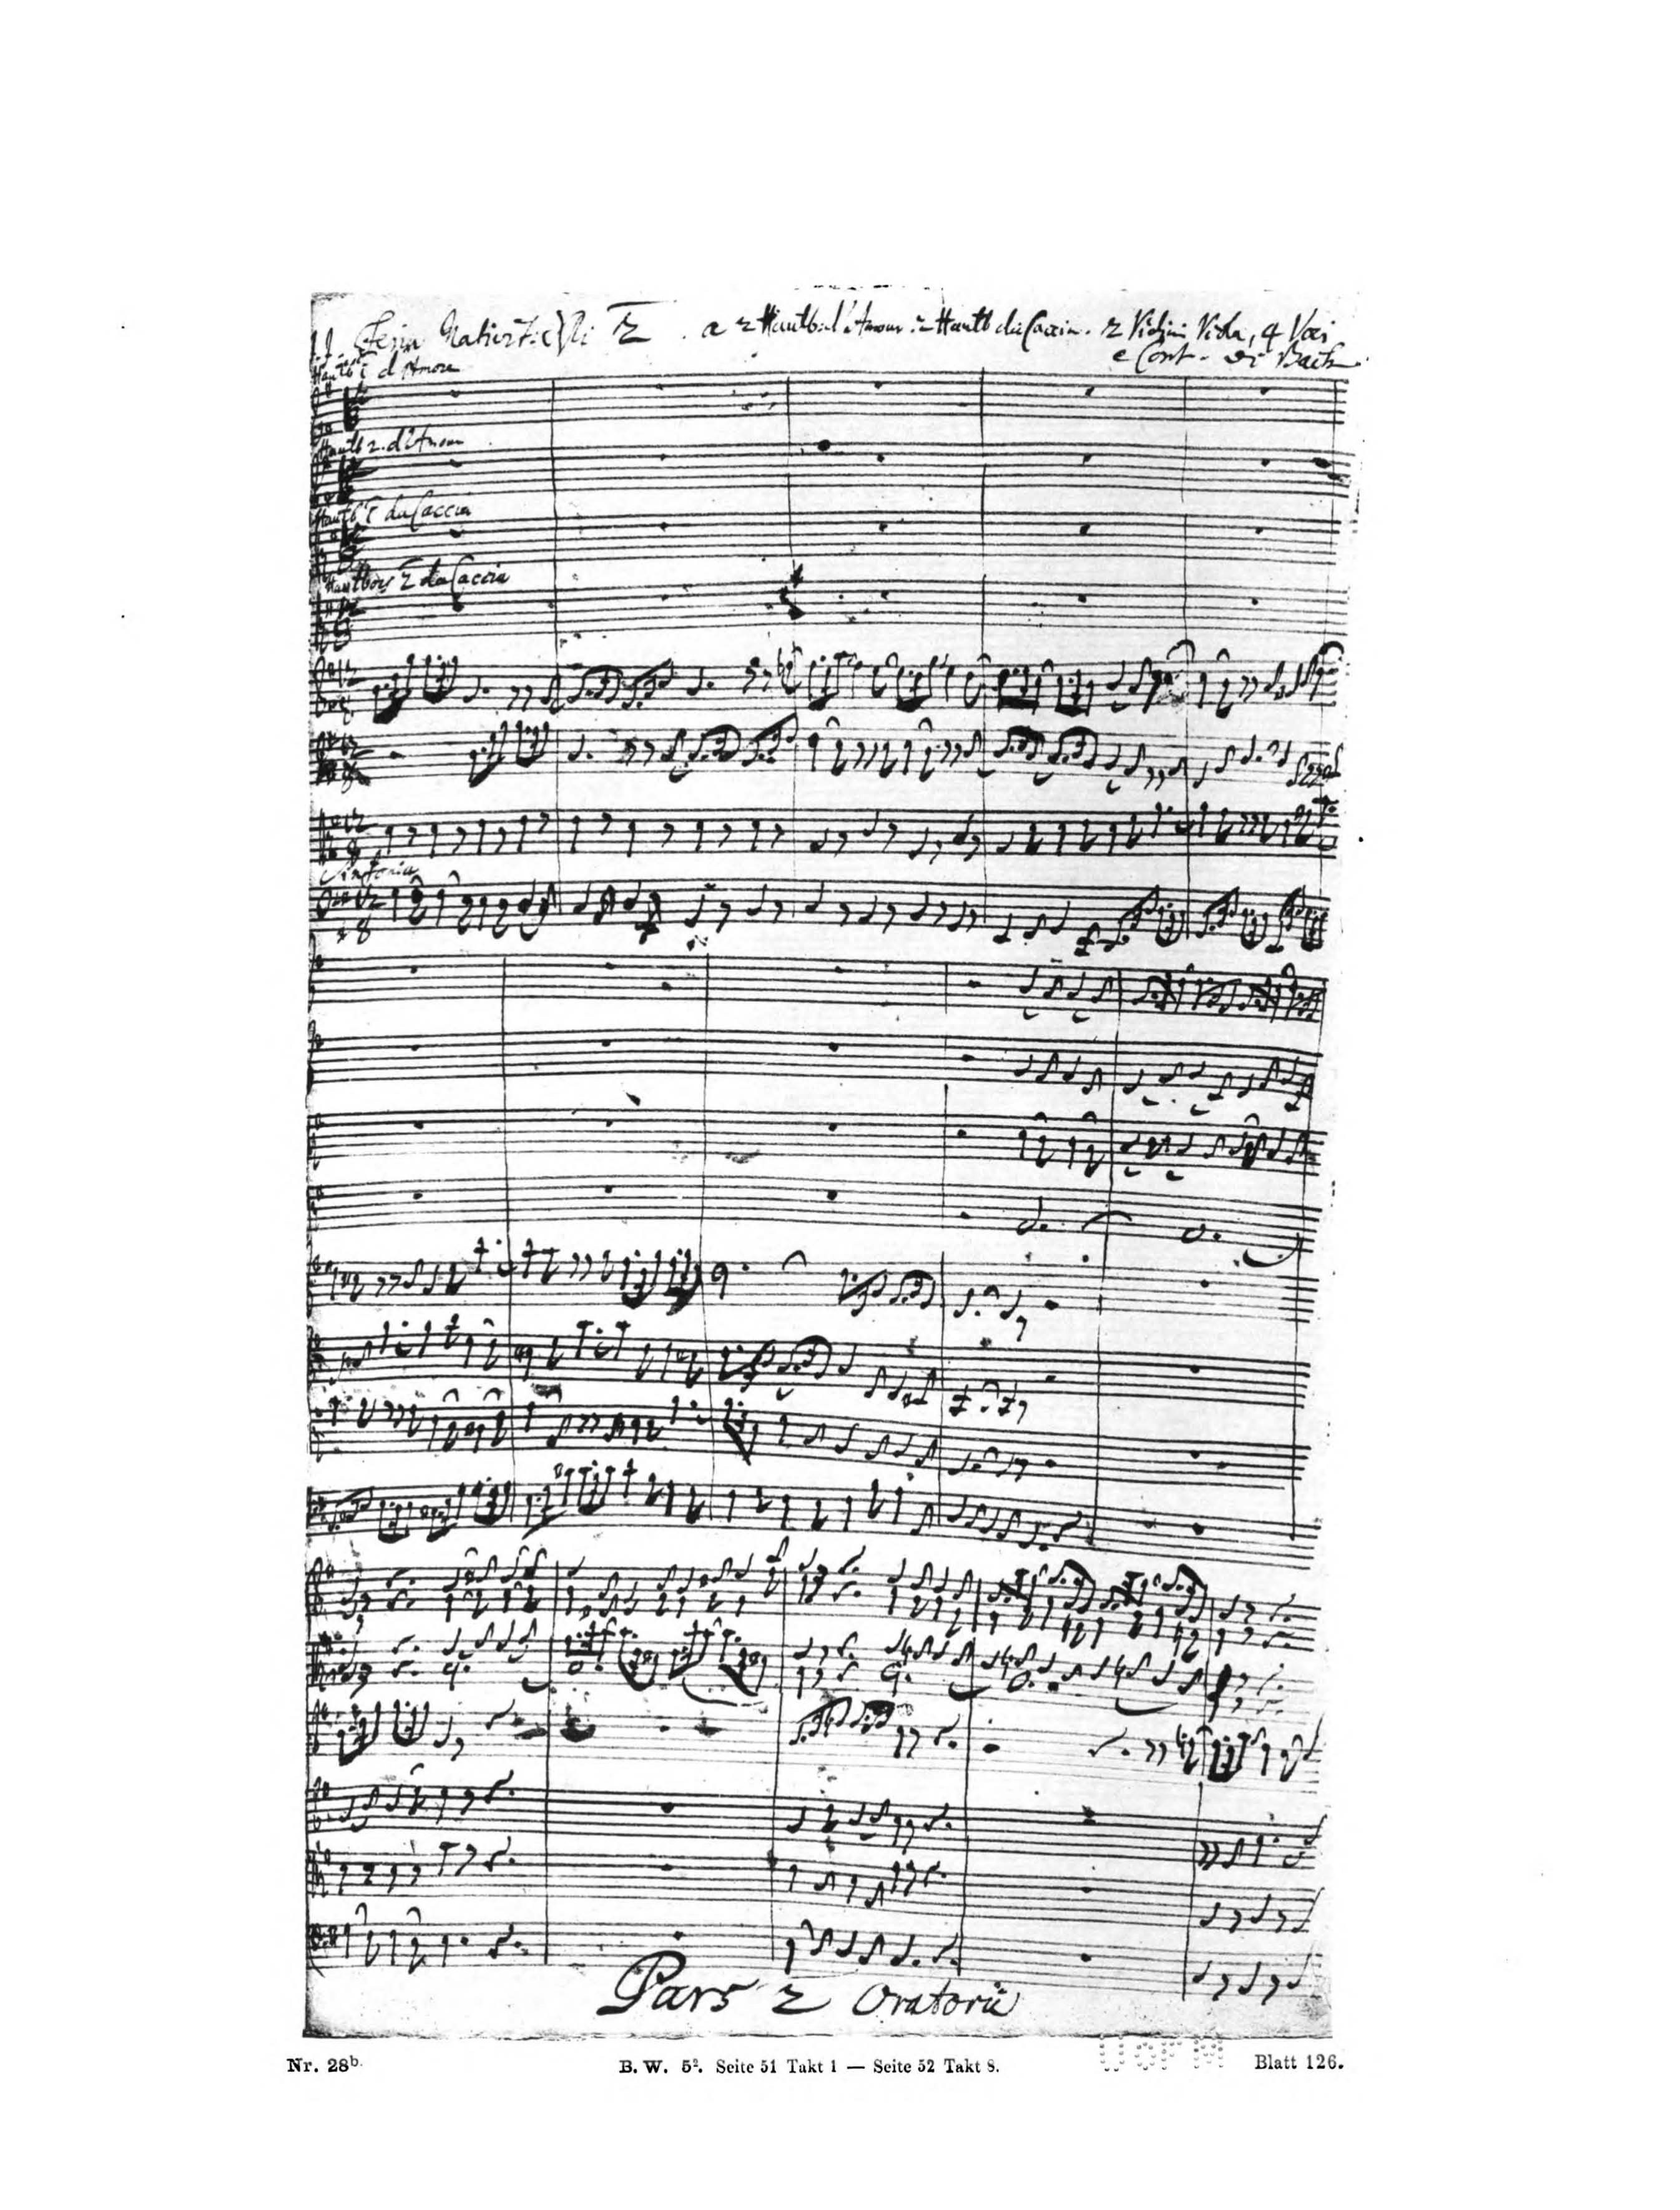 J.J. Feria 2 Nativit: Xsti . a 2 Hautb. d'Amour. 2 Hautb da Caccia. 2 Violini Viola, 4 Voci
e Cont. di Bach
Hautb 1 d'Amore
Hautb 2. d'Amour
Hautb 1 da Caccia
Hautbois 2 da Caccia
Sinfonia
Pars 2 Oratorii
Nr. 28b. B. W. 5². Seite 51 Takt 1 — Seite 52 Takt 8. Blatt 126.
U OF M